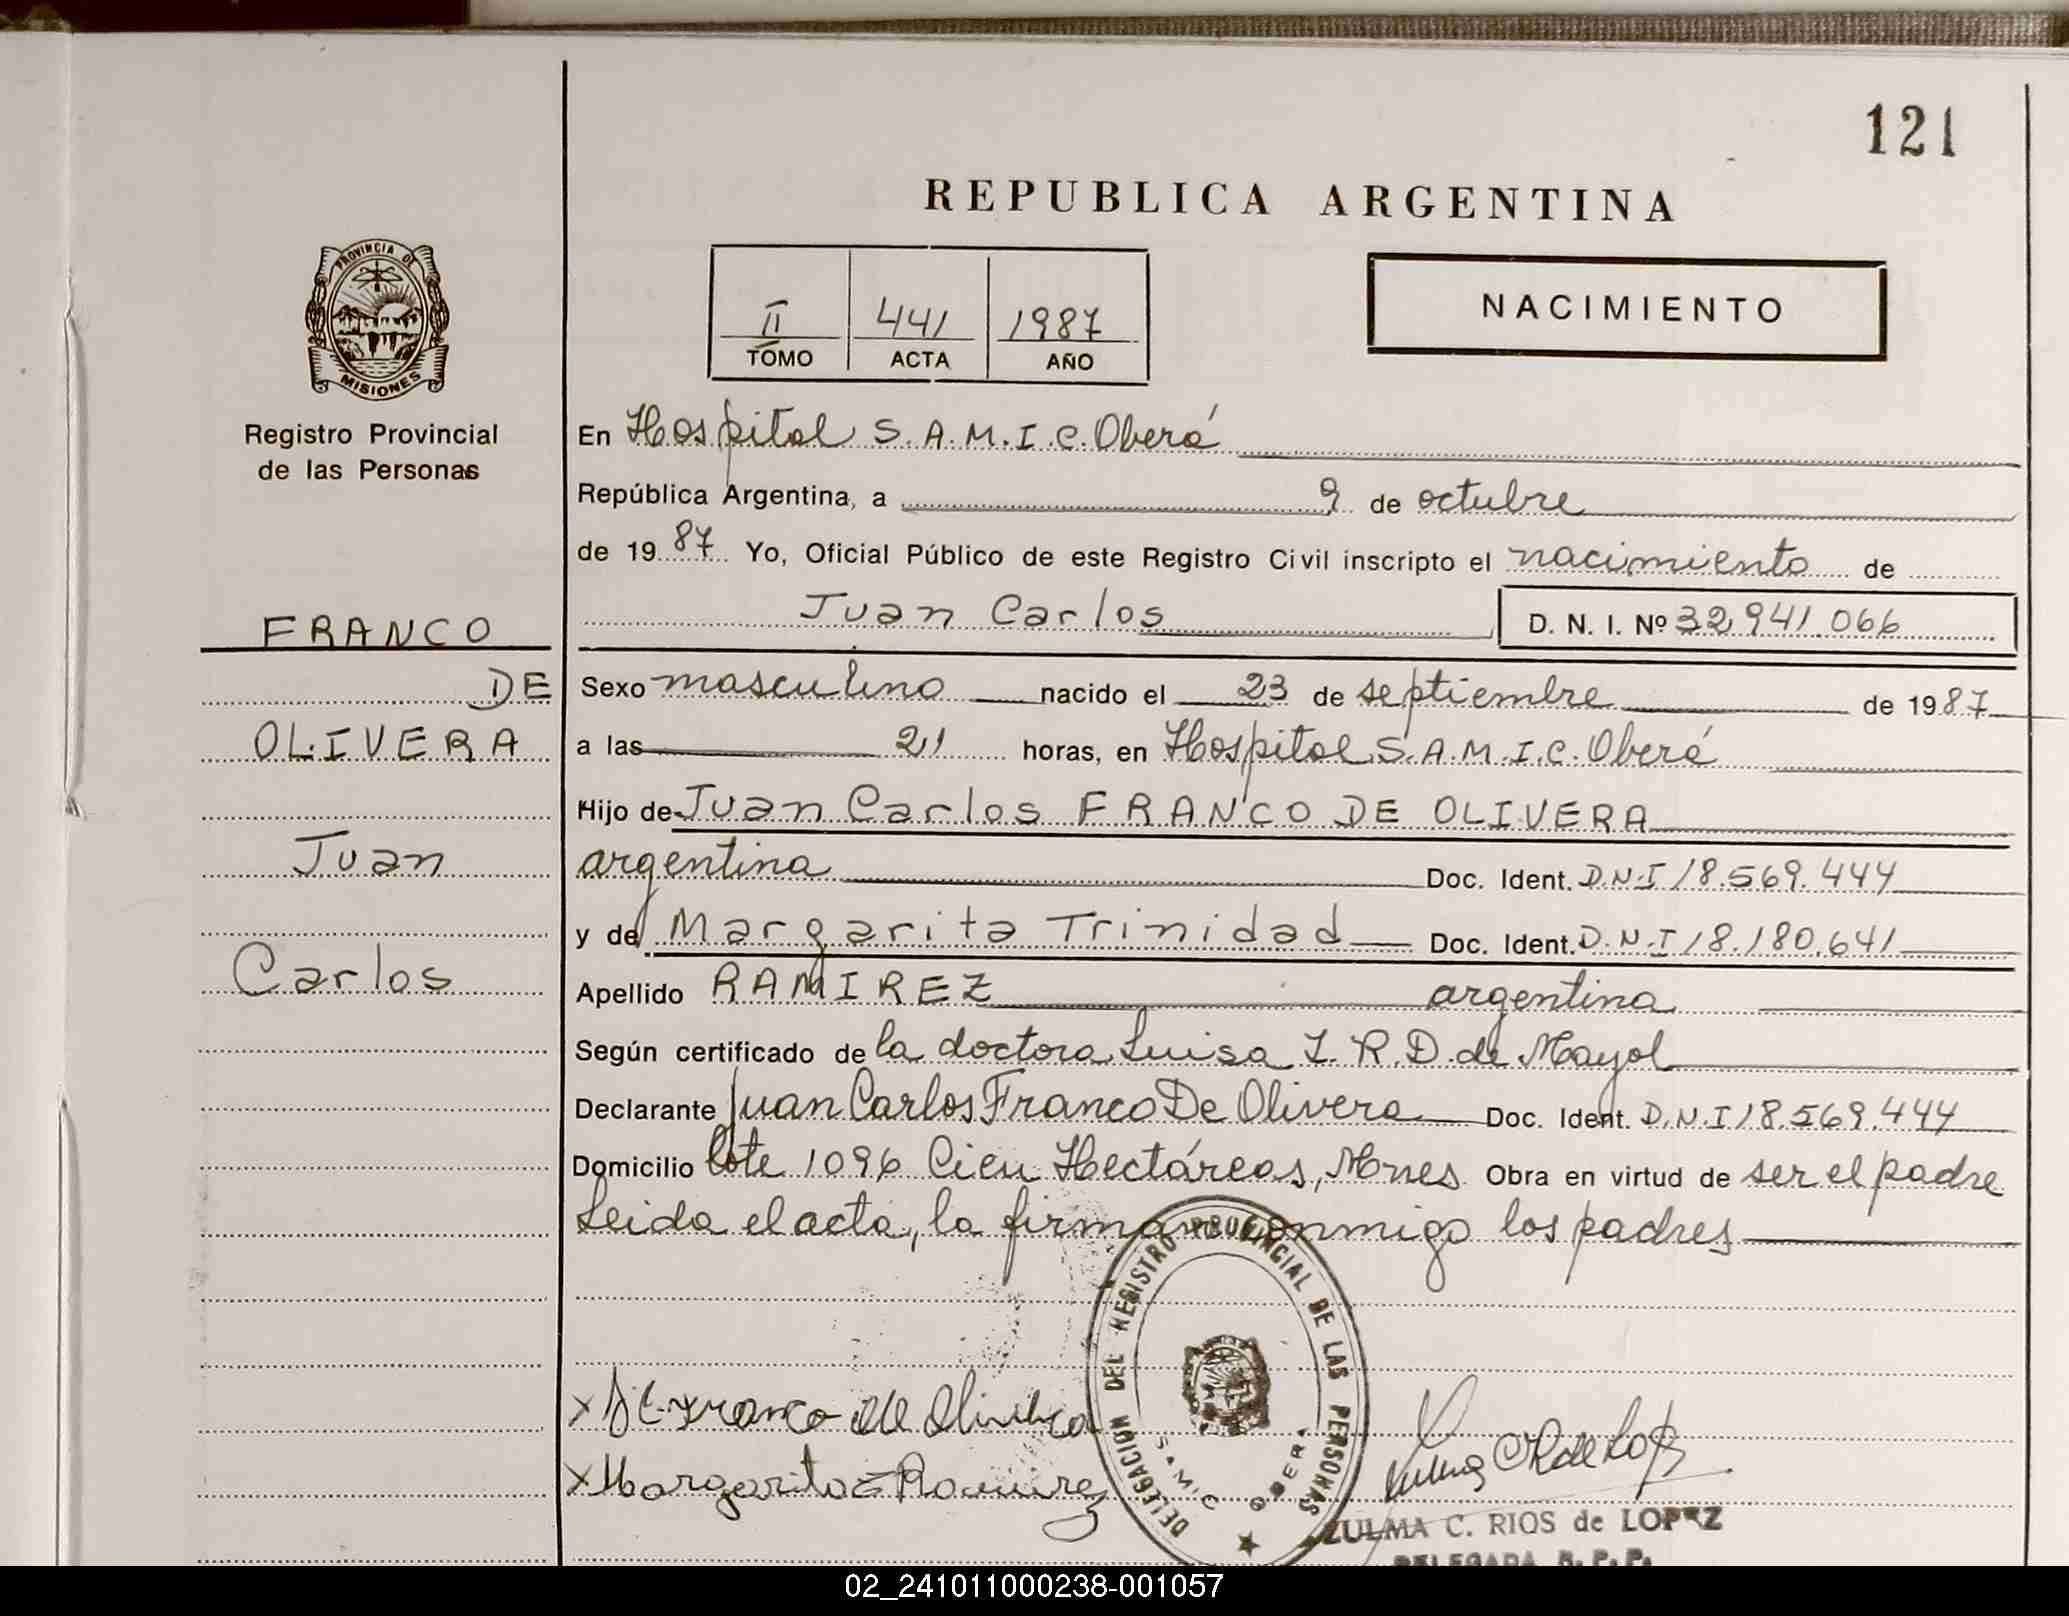 121
REPUBLICA ARGENTINA
PROVINCIA DE
MISIONES
Registro Provincial
de las Personas
II 441 1987
TOMO ACTA AÑO
NACIMIENTO
En Hospital S.A.M.I.C. Oberá
República Argentina, a 9 de octubre
de 1987 Yo, Oficial Público de este Registro Civil inscripto el nacimiento de
Juan Carlos D. N. I. Nº 32.941.066
FRANCO
DE
OLIVERA
Juan
Carlos
Sexo masculino nacido el 23 de septiembre de 1987
a las 21 horas, en Hospital S.A.M.I.C. Oberá
Hijo de Juan Carlos FRANCO DE OLIVERA
argentina Doc. Ident. D.N.I 18.569.444
y de Margarita Trinidad Doc. Ident. D.N.I 18.180.641
Apellido RAMIREZ argentina
Según certificado de la doctora Luisa I. R. D. de Mayol
Declarante Juan Carlos Franco De Olivera Doc. Ident. D.N.I 18.569.444
Domicilio lote 1096 Cien Hectáreas, Mnes Obra en virtud de ser el padre
Leida el acta, la firman conmigo los padres
DELEGACION DEL REGISTRO PROVINCIAL DE LAS PERSONAS
SAMIC OBERA
Franco de Olivera
Margarita Ramirez
ZULMA C. RIOS de LOPEZ
DELEGADA R. P. P.
02_241011000238-001057